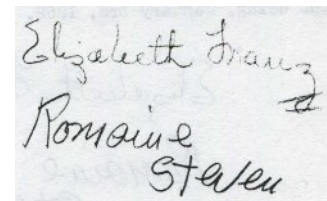 Elizabeth Franz
Romaine
Steven